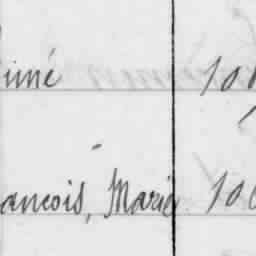 imé 10
ancois, Marie 10